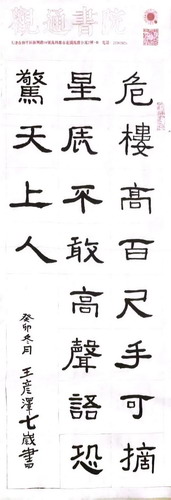 觀通書院
危樓高百尺手可摘
星辰不敢高聲語恐
驚天上人
癸卯冬月 王彦澤七歲書